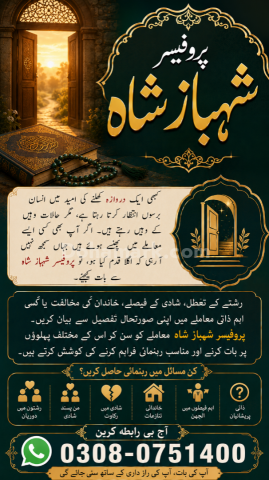 پروفیسر
شہباز شاہ
کبھی ایک دروازہ کھلنے کی امید میں انسان
برسوں انتظار کرتا رہتا ہے، مگر حالات وہیں
کے وہیں رہتے ہیں۔ اگر آپ بھی کسی ایسے
معاملے میں پھنسے ہوئے ہیں جہاں سمجھ نہیں
آ رہی کہ اگلا قدم کیا ہو، تو پروفیسر شہباز شاہ
سے بات کیجیے۔
رشتے کے تعطل، شادی کے فیصلے، خاندان کی مخالفت یا کسی
اہم ذاتی معاملے میں اپنی صورتحال تفصیل سے بیان کریں۔
پروفیسر شہباز شاہ معاملے کو سن کر اس کے مختلف پہلوؤں
پر بات کرنے اور مناسب رہنمائی فراہم کرنے کی کوشش کرتے ہیں۔
کن مسائل میں رہنمائی حاصل کریں؟
ذاتی پریشانیاں
اہم فیصلوں میں الجھن
خاندانی تنازعات
شادی میں رکاوٹ
من پسند شادی
رشتوں میں دوریاں
آج ہی رابطہ کریں
0308-0751400
آپ کی بات، آپ کی راز داری کے ساتھ سنی جائے گی